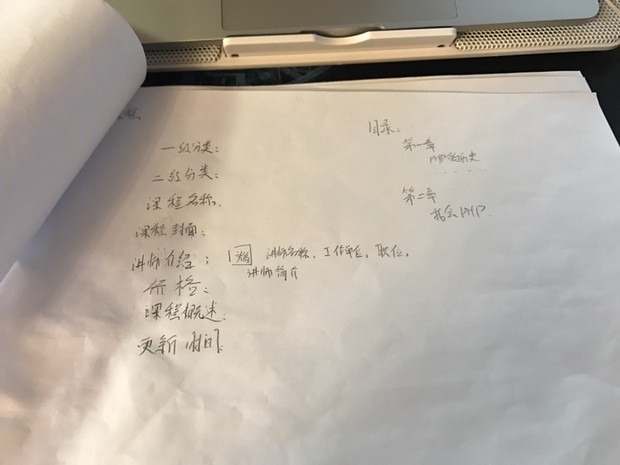 一级分类:
二级分类:
课程名称.
课程封面:
讲师介绍: 讲师名称, 工作单位, 职位,
讲师简介
价格:
课程概述:
更新时间:
目录:
第一章
PHP的历史
. . . . .
第二章
PHP.